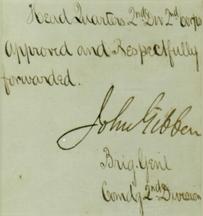 Head Quarters 2nd Div 2d Corps
Approved and Respectfully
forwarded.
John Gibbon
Brig. Genl
Comdg 2nd Division